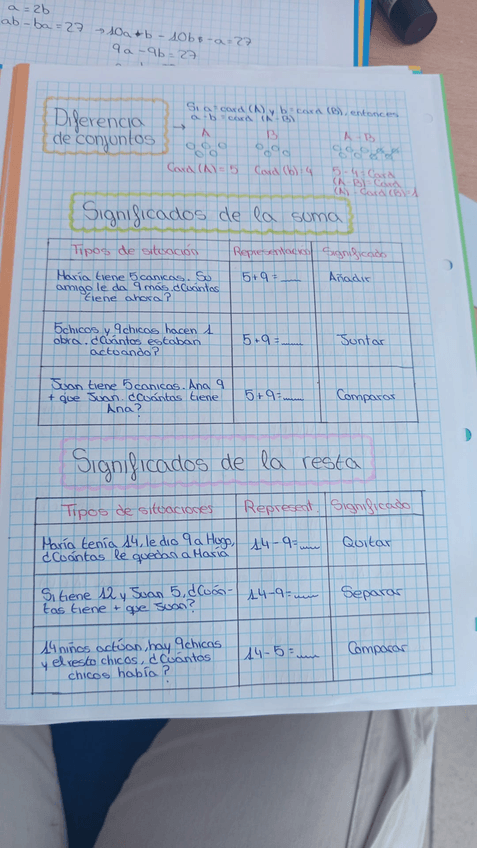 a = 2b
ab - ba = 27 → 10a + b - 10b - a = 27
9a - 9b = 27
Diferencia de conjuntos
→ Si a = card (A) y b = card (B), entonces
a - b = card (A - B)
A B A - B
Card (A) = 5 Card (b) = 4 5 - 4 = Card
(A - B) = Card
(A) - Card (B) = 1
Significados de la suma
Tipos de situación Representacio Significado
María tiene 5 canicas. Su
amigo le da 9 más, ¿Cuántas
tiene ahora?
5 + 9 = __
Añadir
5 chicos y 9 chicas hacen 1
obra. ¿Cuántos estaban
actuando?
5 + 9 = __
Juntar
Juan tiene 5 canicas. Ana 9
+ que Juan. ¿Cuántas tiene
Ana?
5 + 9 = __
Comparar
Significados de la resta
Tipos de situaciones Represent Significado
María tenía 14, le dio 9 a Hugo,
¿Cuántas le quedan a María
14 - 9 = __
Quitar
Si tiene 12 y Juan 5, ¿Cuán-
tas tiene + que Juan?
14 - 9 = __
Separar
14 niños actúan, hay 9 chicas
y el resto chicos, ¿Cuántos
chicos había?
14 - 5 = __
Comparar